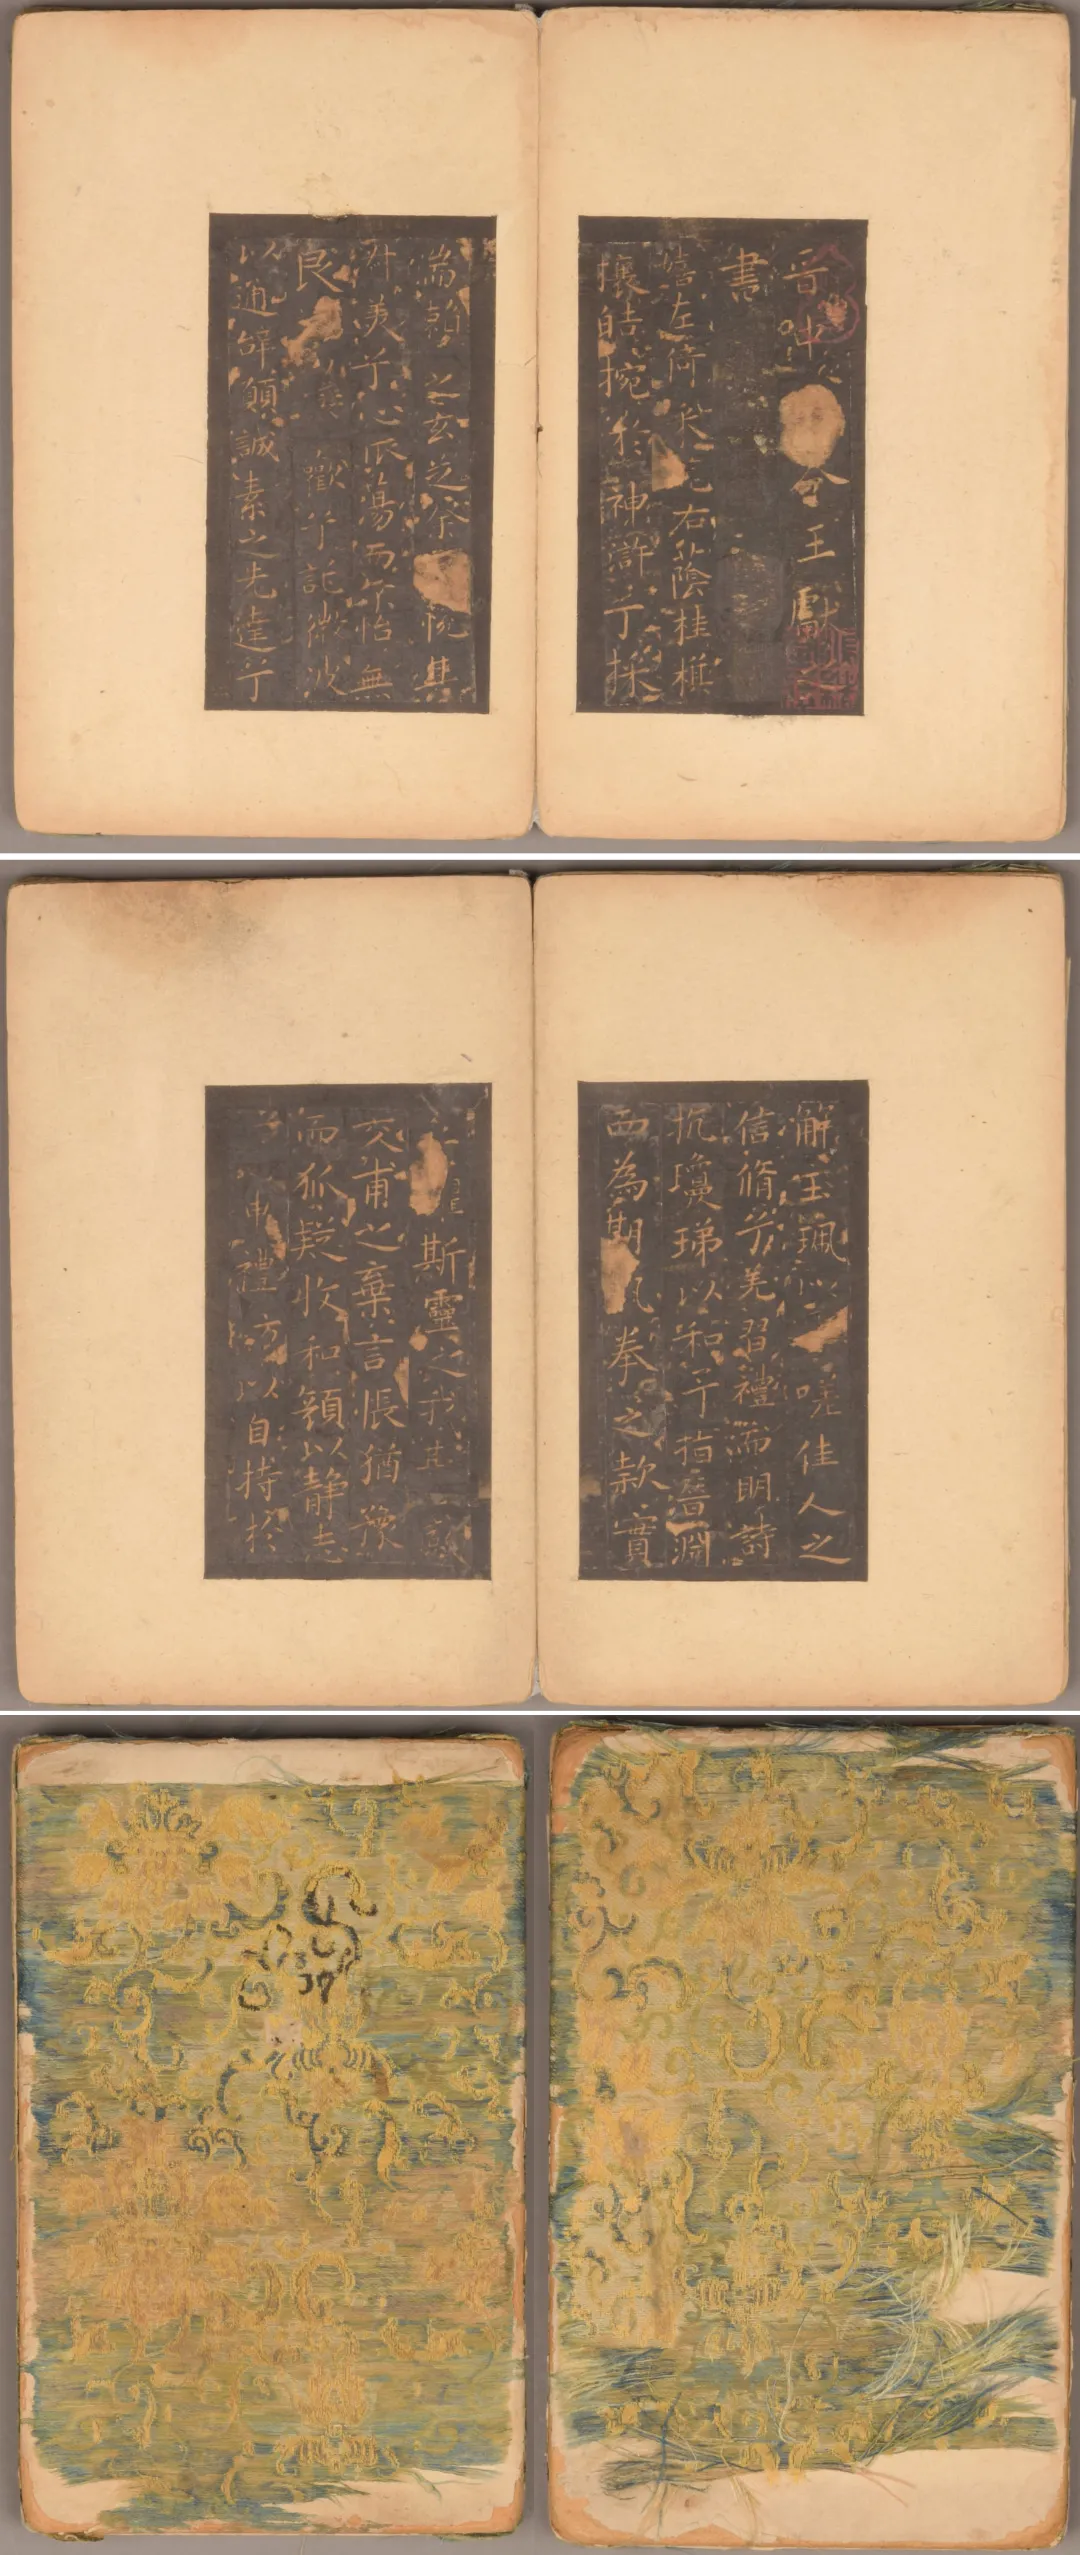 晉中令王獻之
書
嬉左倚采旄右蔭桂旗
攘皓捥於神滸兮採
湍瀨之玄芝余悅其
淑美兮心振蕩而不怡無
良以歡兮託微波
以通辭願誠素之先達兮
解玉珮以嗟佳人之
信脩兮羌習禮而明詩
抗瓊珶以和兮指潛淵
而為期執拳之款實
斯靈之我其
交甫之棄言悵猶豫
而狐疑收和顏以靜志
申禮防以自持於